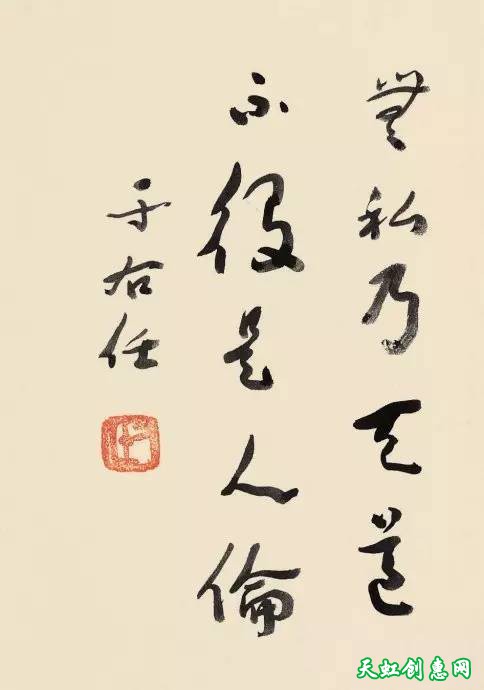 無私乃天道
不役是人倫
于右任
天虹创意网